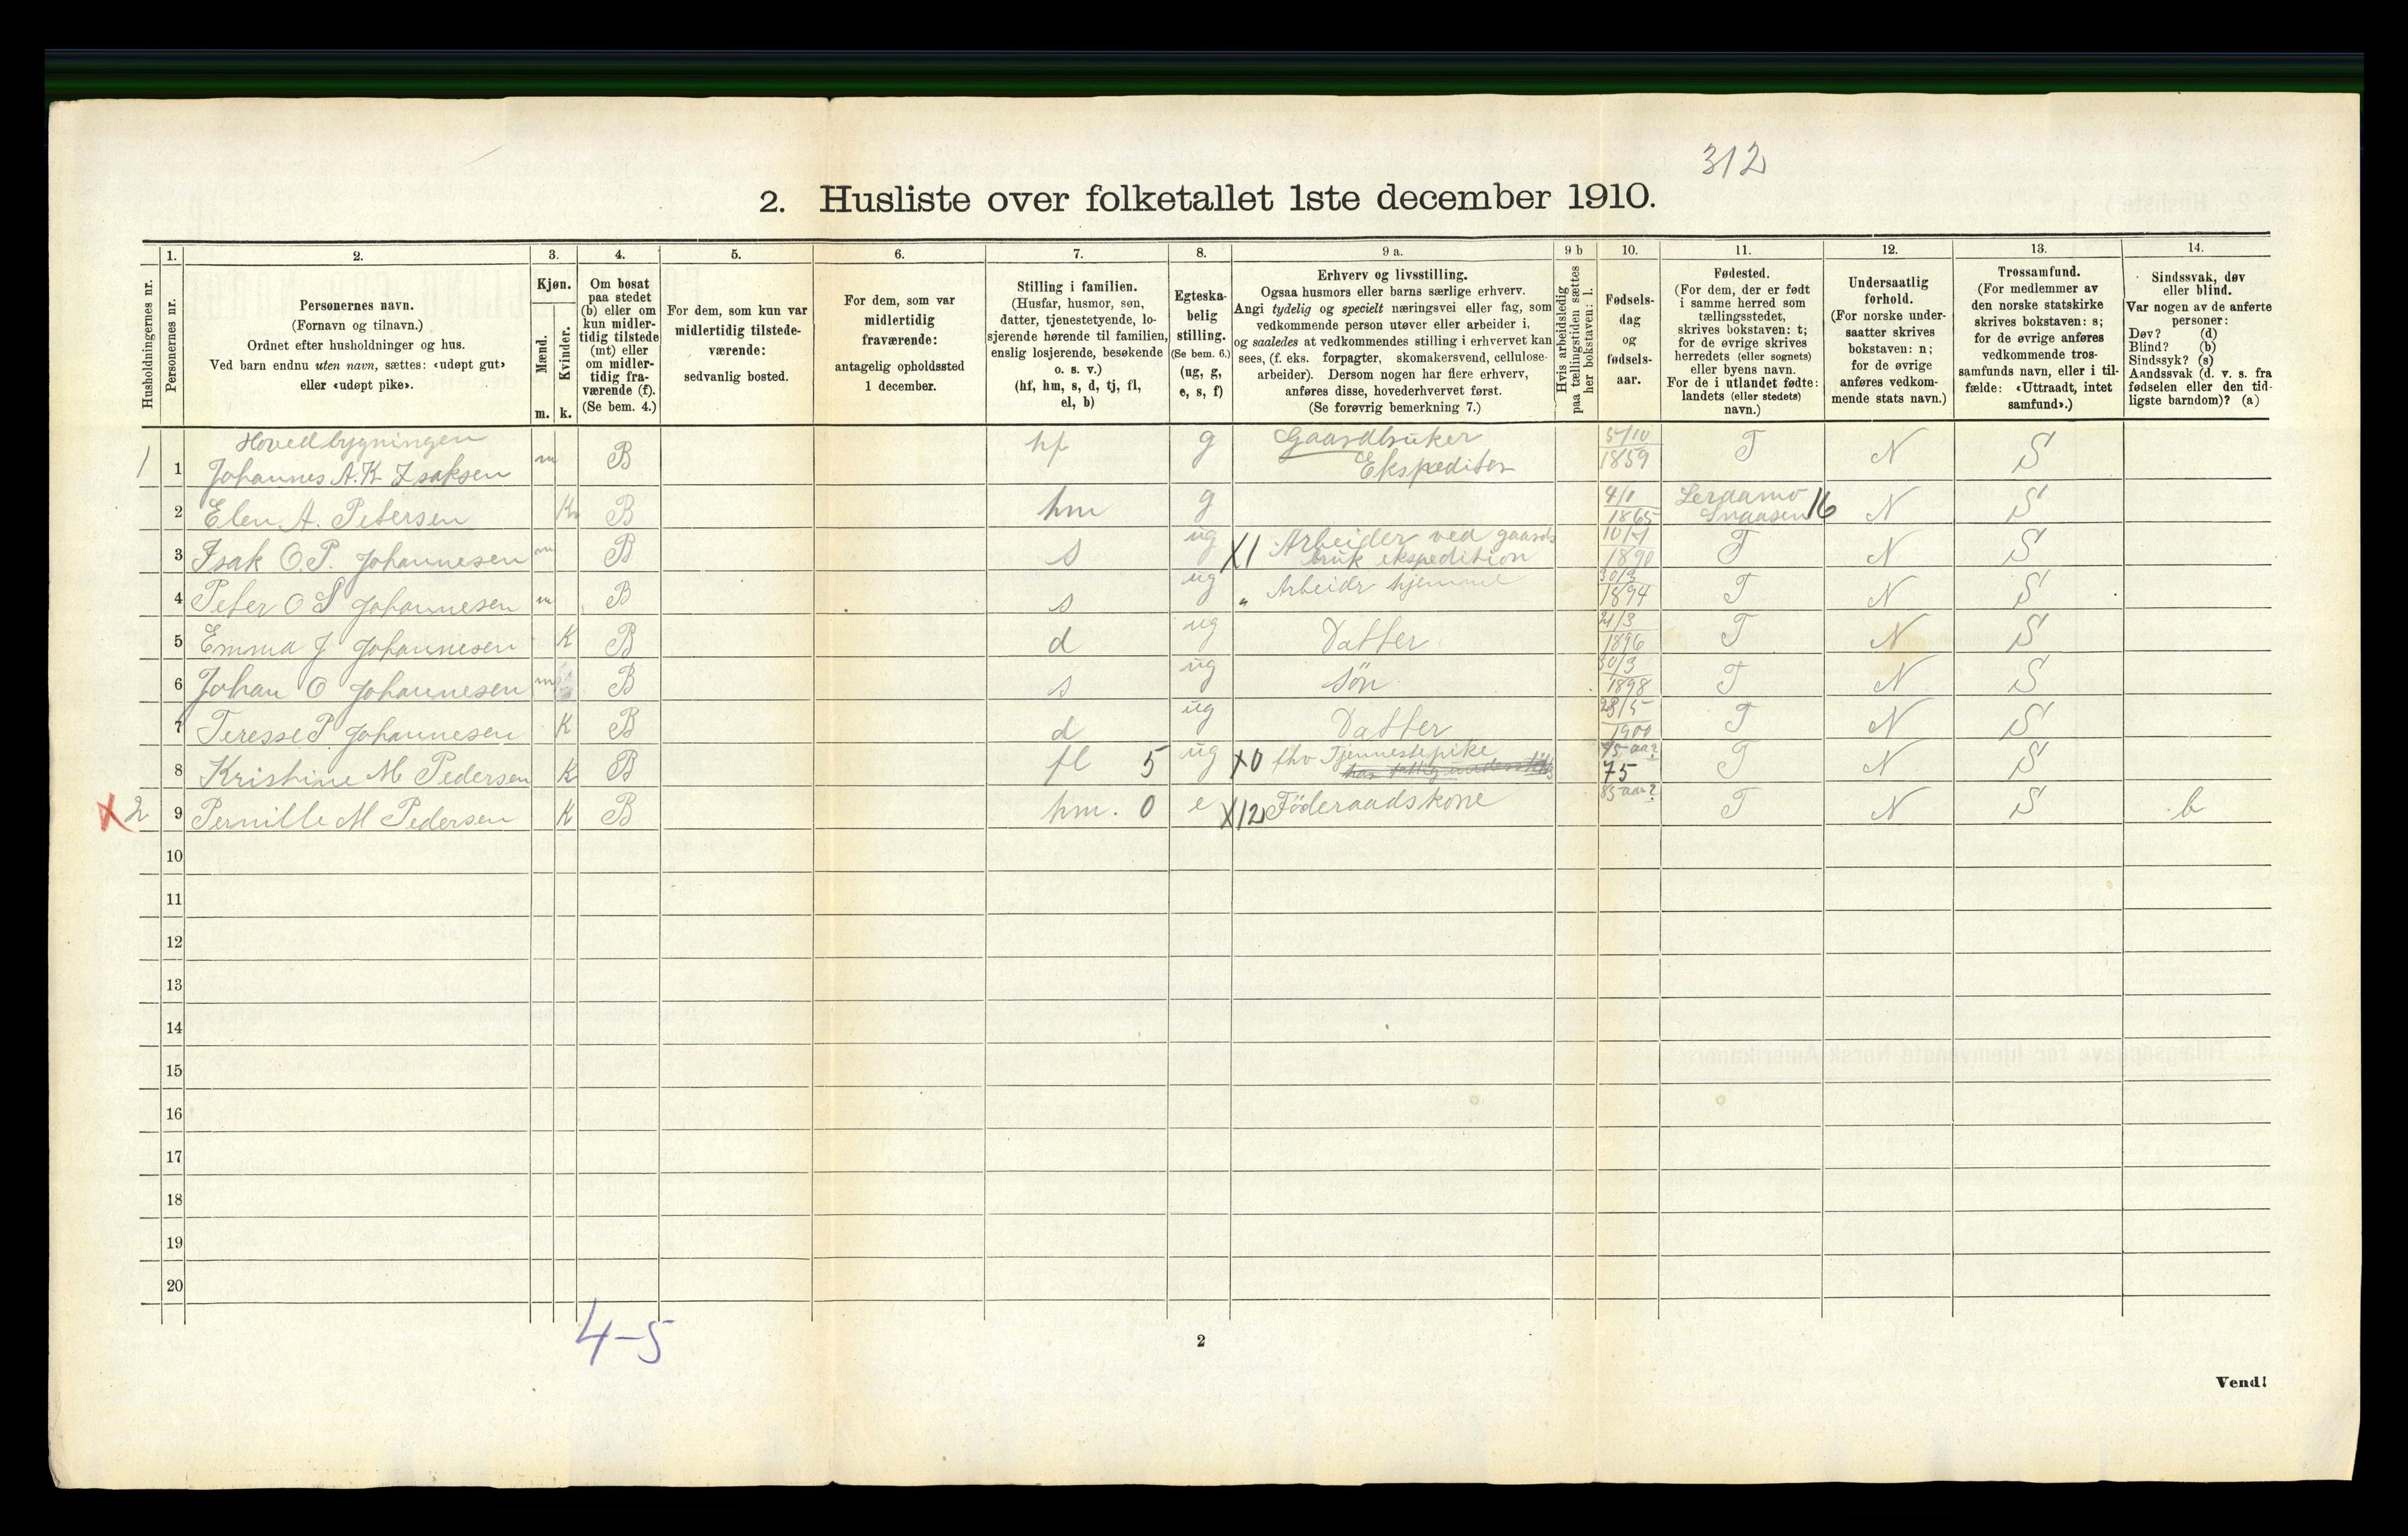 312
2. Husliste over folketallet 1ste december 1910.
Husholdningernes nr.
1.
Personernes nr.
2.
Personernes navn.
(Fornavn og tilnavn.)
Ordnet efter husholdninger og hus.
Ved barn endnu uten navn, sættes: «udøpt gut»
eller «udøpt pike».
3.
Kjøn.
Mænd.
m.
Kvinder.
k.
4.
Om bosat
paa stedet
(b) eller om
kun midler-
tidig tilstede
(mt) eller
om midler-
tidig fra-
værende (f).
(Se bem. 4.)
5.
For dem, som kun var
midlertidig tilstede-
værende:
sedvanlig bosted.
6.
For dem, som var
midlertidig
fraværende:
antagelig opholdssted
1 december.
7.
Stilling i familien.
(Husfar, husmor, søn,
datter, tjenestetyende, lo-
sjerende hørende til familien,
enslig losjerende, besøkende
o. s. v.)
(hf, hm, s, d, tj, fl,
el, b)
8.
Egteska-
belig
stilling.
(Se bem. 6.)
(ug, g,
e, s, f)
9 a.
Erhverv og livsstilling.
Ogsaa husmors eller barns særlige erhverv.
Angi tydelig og specielt næringsvei eller fag, som
vedkommende person utøver eller arbeider i,
og saaledes at vedkommendes stilling i erhvervet kan
sees, (f. eks. forpagter, skomakersvend, cellulose-
arbeider). Dersom nogen har flere erhverv,
anføres disse, hovederhvervet først.
(Se forøvrig bemerkning 7.)
9 b
Hvis arbeidsledig
paa tællingstiden sættes
her bokstaven: l.
10.
Fødsels-
dag
og
fødsels-
aar.
11.
Fødested.
(For dem, der er født
i samme herred som
tællingsstedet,
skrives bokstaven: t;
for de øvrige skrives
herredets (eller sognets)
eller byens navn.
For de i utlandet fødte:
landets (eller stedets)
navn.)
12.
Undersaatlig
forhold.
(For norske under-
saatter skrives
bokstaven: n;
for de øvrige
anføres vedkom-
mende stats navn.)
13.
Trossamfund.
(For medlemmer av
den norske statskirke
skrives bokstaven: s;
for de øvrige anføres
vedkommende tros-
samfunds navn, eller i til-
fælde: «Uttraadt, intet
samfund».)
14.
Sindssvak, døv
eller blind.
Var nogen av de anførte
personer:
Døv? (d)
Blind? (b)
Sindssyk? (s)
Aandssvak (d. v. s. fra
fødselen eller den tid-
ligste barndom)? (a)
Hovedbygningen
1 1 Johannes A.K Isaksen m B hf g Gaardbruker Ekspeditør 5/10 1859 T N S
2 Elen A. Petersen K B hm g 1865 Snaasen 16 N S
3 Isak O.P. Johannesen m B s ug X1 Arbeider ved gaards bruk ekspedition 1890 T N S
4 Peter O S Johannesen m B s ug „ Arbeider hjemme 30/3 1894 T N S
5 Emma J Johannesen K B d ug Datter 21/3 1896 T N S
6 Johan O Johannesen m B s ug Søn 30/3 1898 T N S
7 Teresse P Johannesen K B d ug Datter 28/5 1900 T N S
8 Kristine M Pedersen K B fl 5 ug X0 fhv Tjennestepike 75 aar 75 T N S
X 2 9 Pernille M Pedersen K B hm. 0 e X12 Föderaadskone 85 aar? T N S b
10
11
12
13
14
15
16
17
18
19
20
4-5
2
Vend!